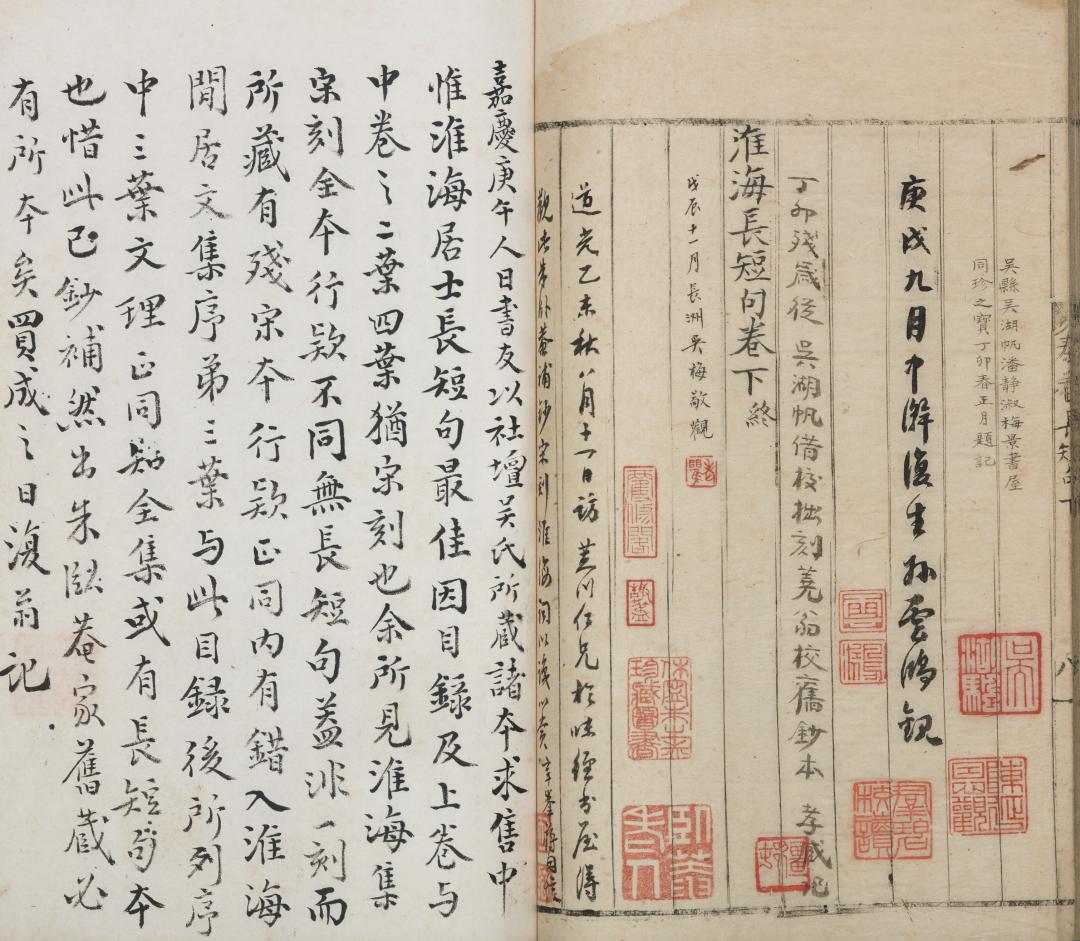 吳縣吳湖帆潘靜淑梅景書屋
同珍之寶丁卯春正月題記
庚戌九月中澣復生孫雲鴻觀
丁卯殘歲從吳湖帆借校拙刻蕘翁校舊鈔本 孝臧記
淮海長短句卷下終
戊辰十一月長洲吳梅敬觀
道光乙未秋八月十一日訪芙川仁兄於味經書屋得
觀此朱臥菴補鈔宋刻淮海詞以誌
嘉慶庚午人日書友以社壇吳氏所藏諸本求售中
惟淮海居士長短句最佳因目錄及上卷与
中卷之二葉四葉猶宋刻也余所見淮海集
宋刻全本行欵不同無長短句蓋非一刻而
所藏有殘宋本行欵正同內有錯入淮海
閒居文集序弟三葉与此目錄後所列序
中三葉文理正同知全集或有長短句本
也惜此已鈔補然出朱臥菴家舊藏必
有所本矣買成之日復翁記